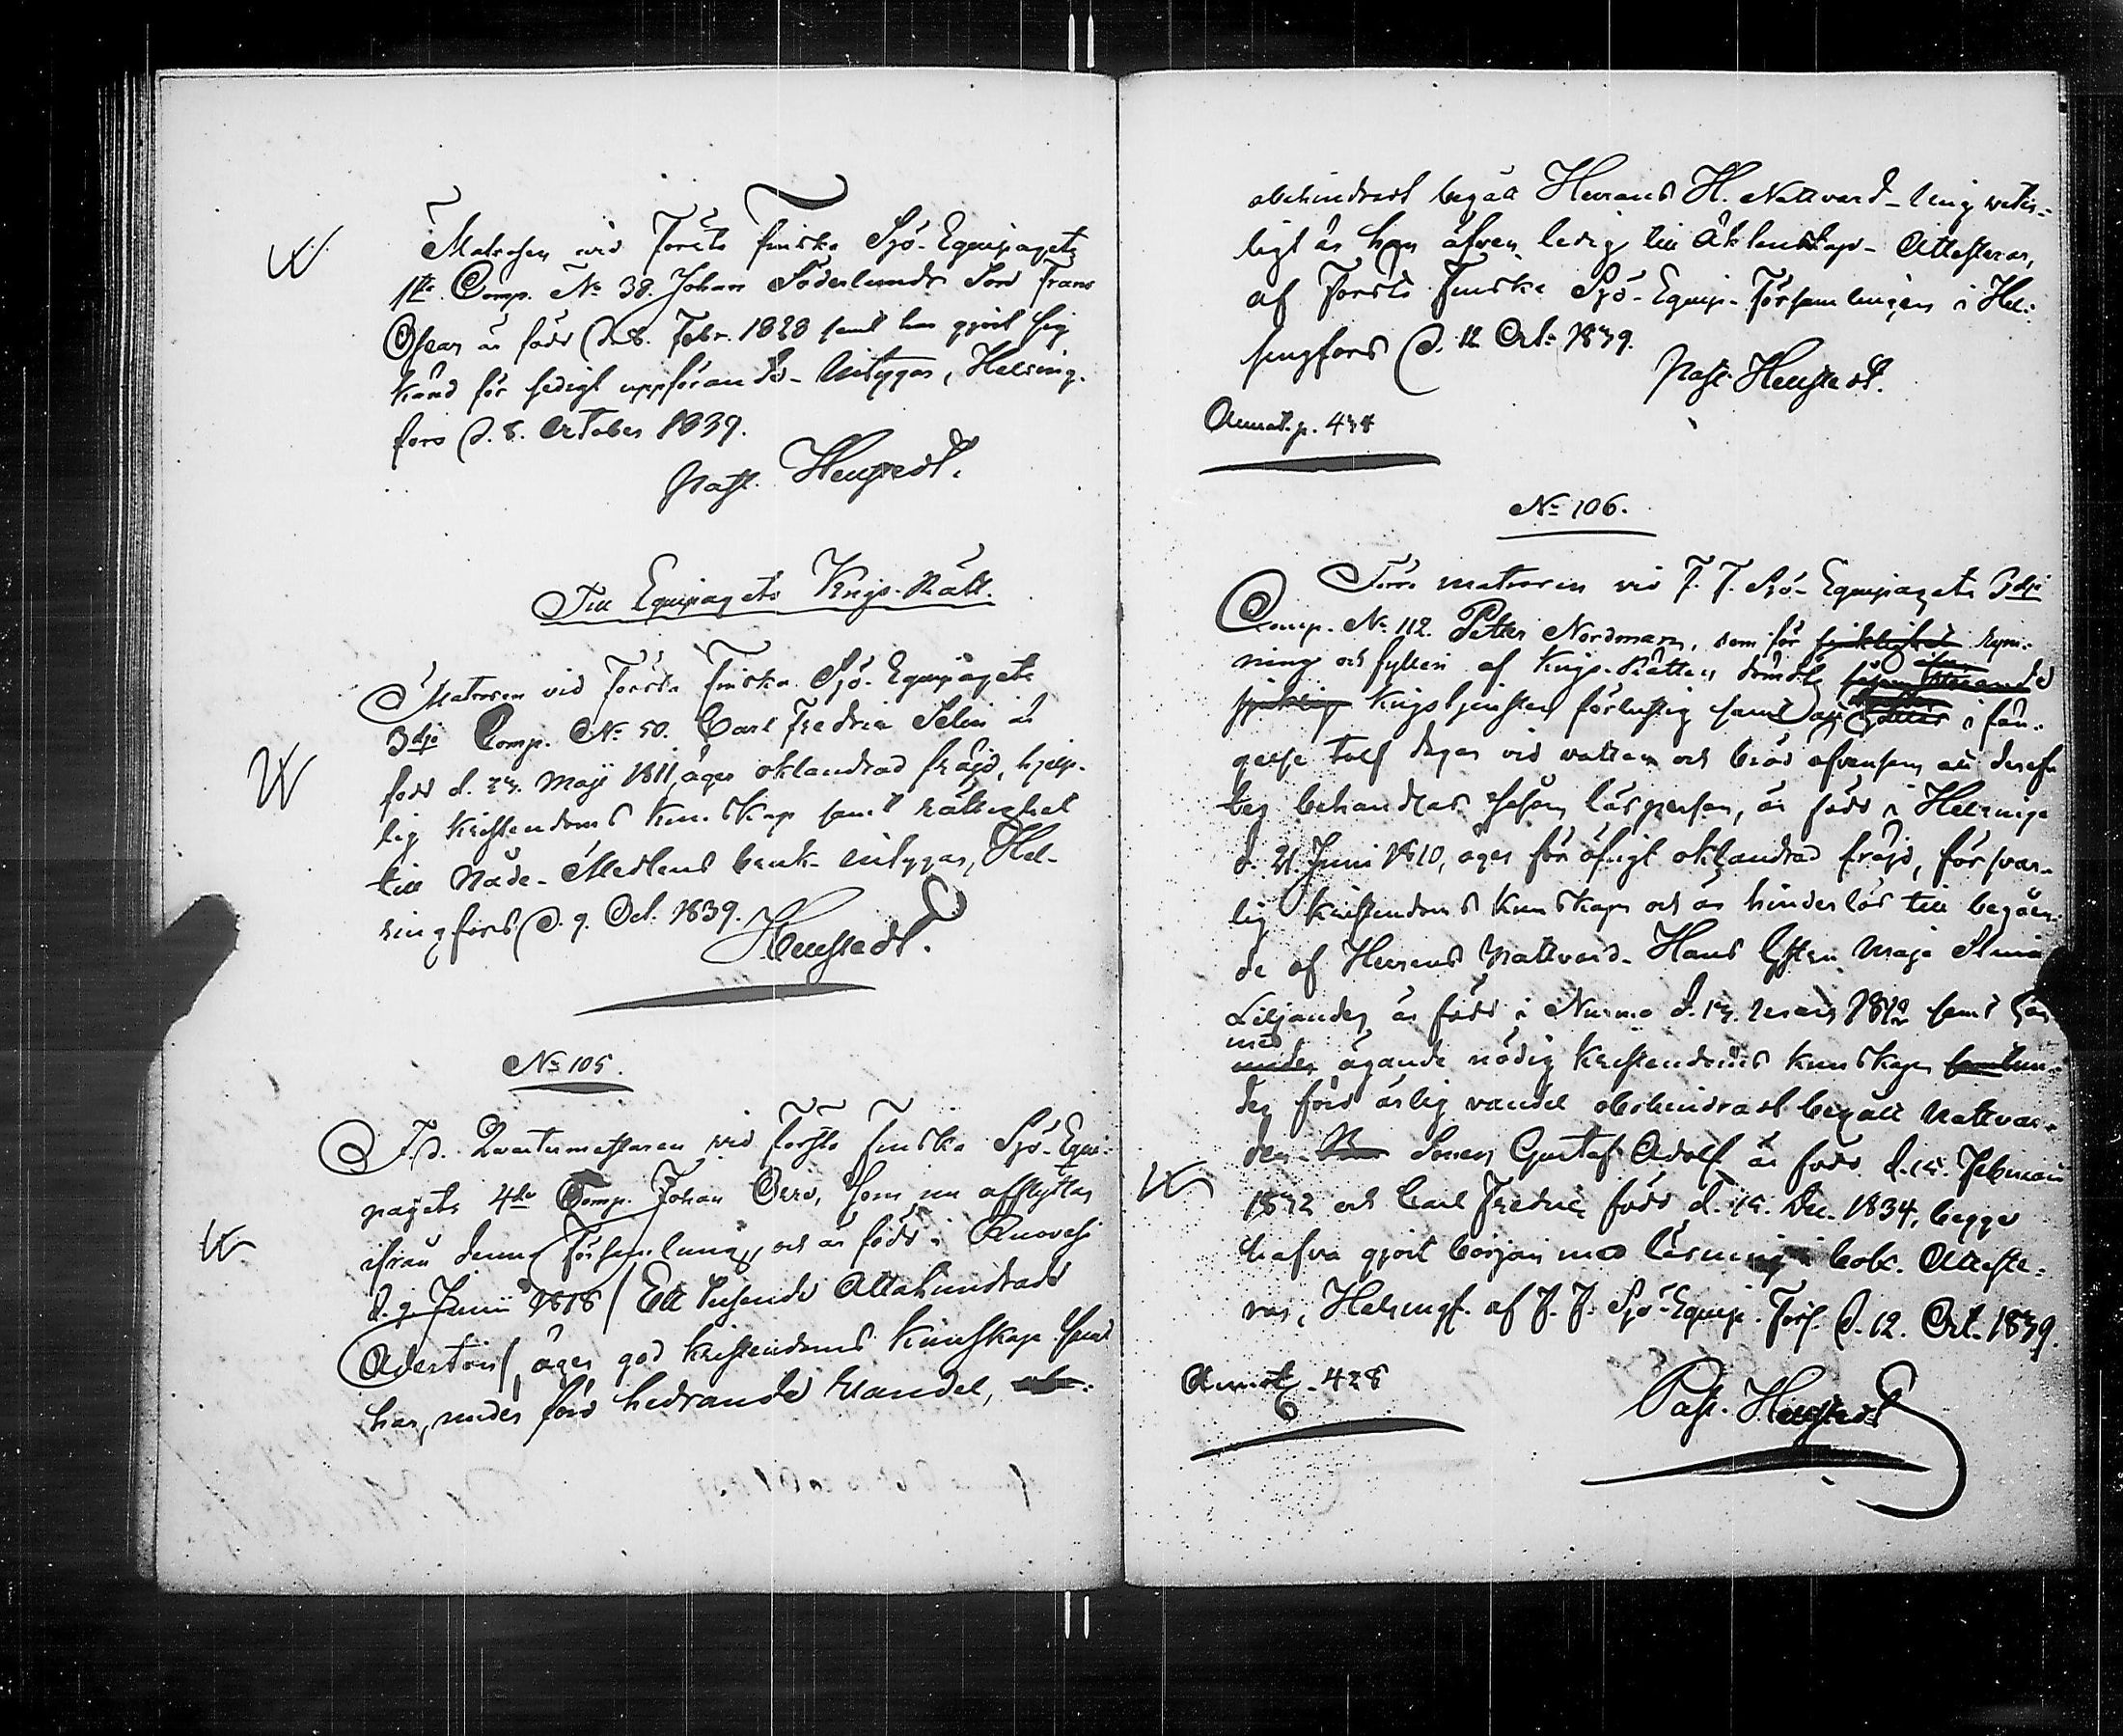 Matrosen vid Första Finska Sjö-Equipagets
1sta Comp. No 38. Johan Söderlunds Son Frans
Oscar är född d. 8. Febr. 1828 samt har gjort sig
känd för sedigt uppförande - Intygar, Helsing-
fors d. 8. October 1839.
Past. Heusstedt.
Till Equipagets Krigs-Rätt.
Matrosen vid Första Finska Sjö-Equipagets
3dje Comp. No 50. Carl Fredric Selin är
född d. 23. Maji 1811, äger oklandrad fräjd, hjelp-
lig kristendoms kunskap samt rättighet
till Nåde-Medlens bruk - intygar, Hel-
singfors d. 9. Oct. 1839.
Heusstedt.
No 105.
F.d. Quartermästaren vid Första Finska Sjö-Equi-
pagets 4de Comp. Johan Orro, som nu afflyttar
ifrån denna Församling, och är född i Ruovesi
d. 9. Junii 1818 / Ett tusende Åttahundrade
Aderton /, äger god kristendoms kunskap samt
har, under förd hedrande vandel,
obehindradt begått Herrans H. Nattvard - Mig veter-
ligt är han äfven ledig till Äktenskap - Attesteras,
af Första Finska Sjö-Equip. Församlingen i Hel-
singfors d. 12 Oct. 1839.
Past. Heusstedt.
Annot. p. 438
No 106.
Förre matrosen vid F. F. Sjö-Equipagets 3dje
Comp. No 112. Petter Nordman, som för sjuklighet rym-
ning och fylleri af Krigs-Rätten dömdts
Krigstjensten förlustig samt att i fän-
gelse tolf dagar vid vatten och bröd äfvensom att deref-
ter behandlas såsom lösperson, är född i Helsinge
d. 21. Junii 1810, äger för öfrigt oklandrad fräjd, försvar-
lig kristendoms kunskap och är hinderlös till begåen-
de af Herrens Nattvard. Hans Hustru Maja Stina
Liljander är född i Nurmo d. 13. Mars 1812 samt har
med
under ägande nödig kristendoms kunskap samt un-
der förd ärlig vandel obehindradt begått Nattvar-
den. Sonen Gustaf Adolf är född d. 15. Februari
1832 och Carl Fredric född d. 15. Dec. 1834, begge
hafva gjort början med läsning i bok. Atteste-
ras, Helsingf. af F. F. Sjö-Equip. Förs. d. 12. Oct. 1839.
Annot. p. 428
Past. Heusstedt